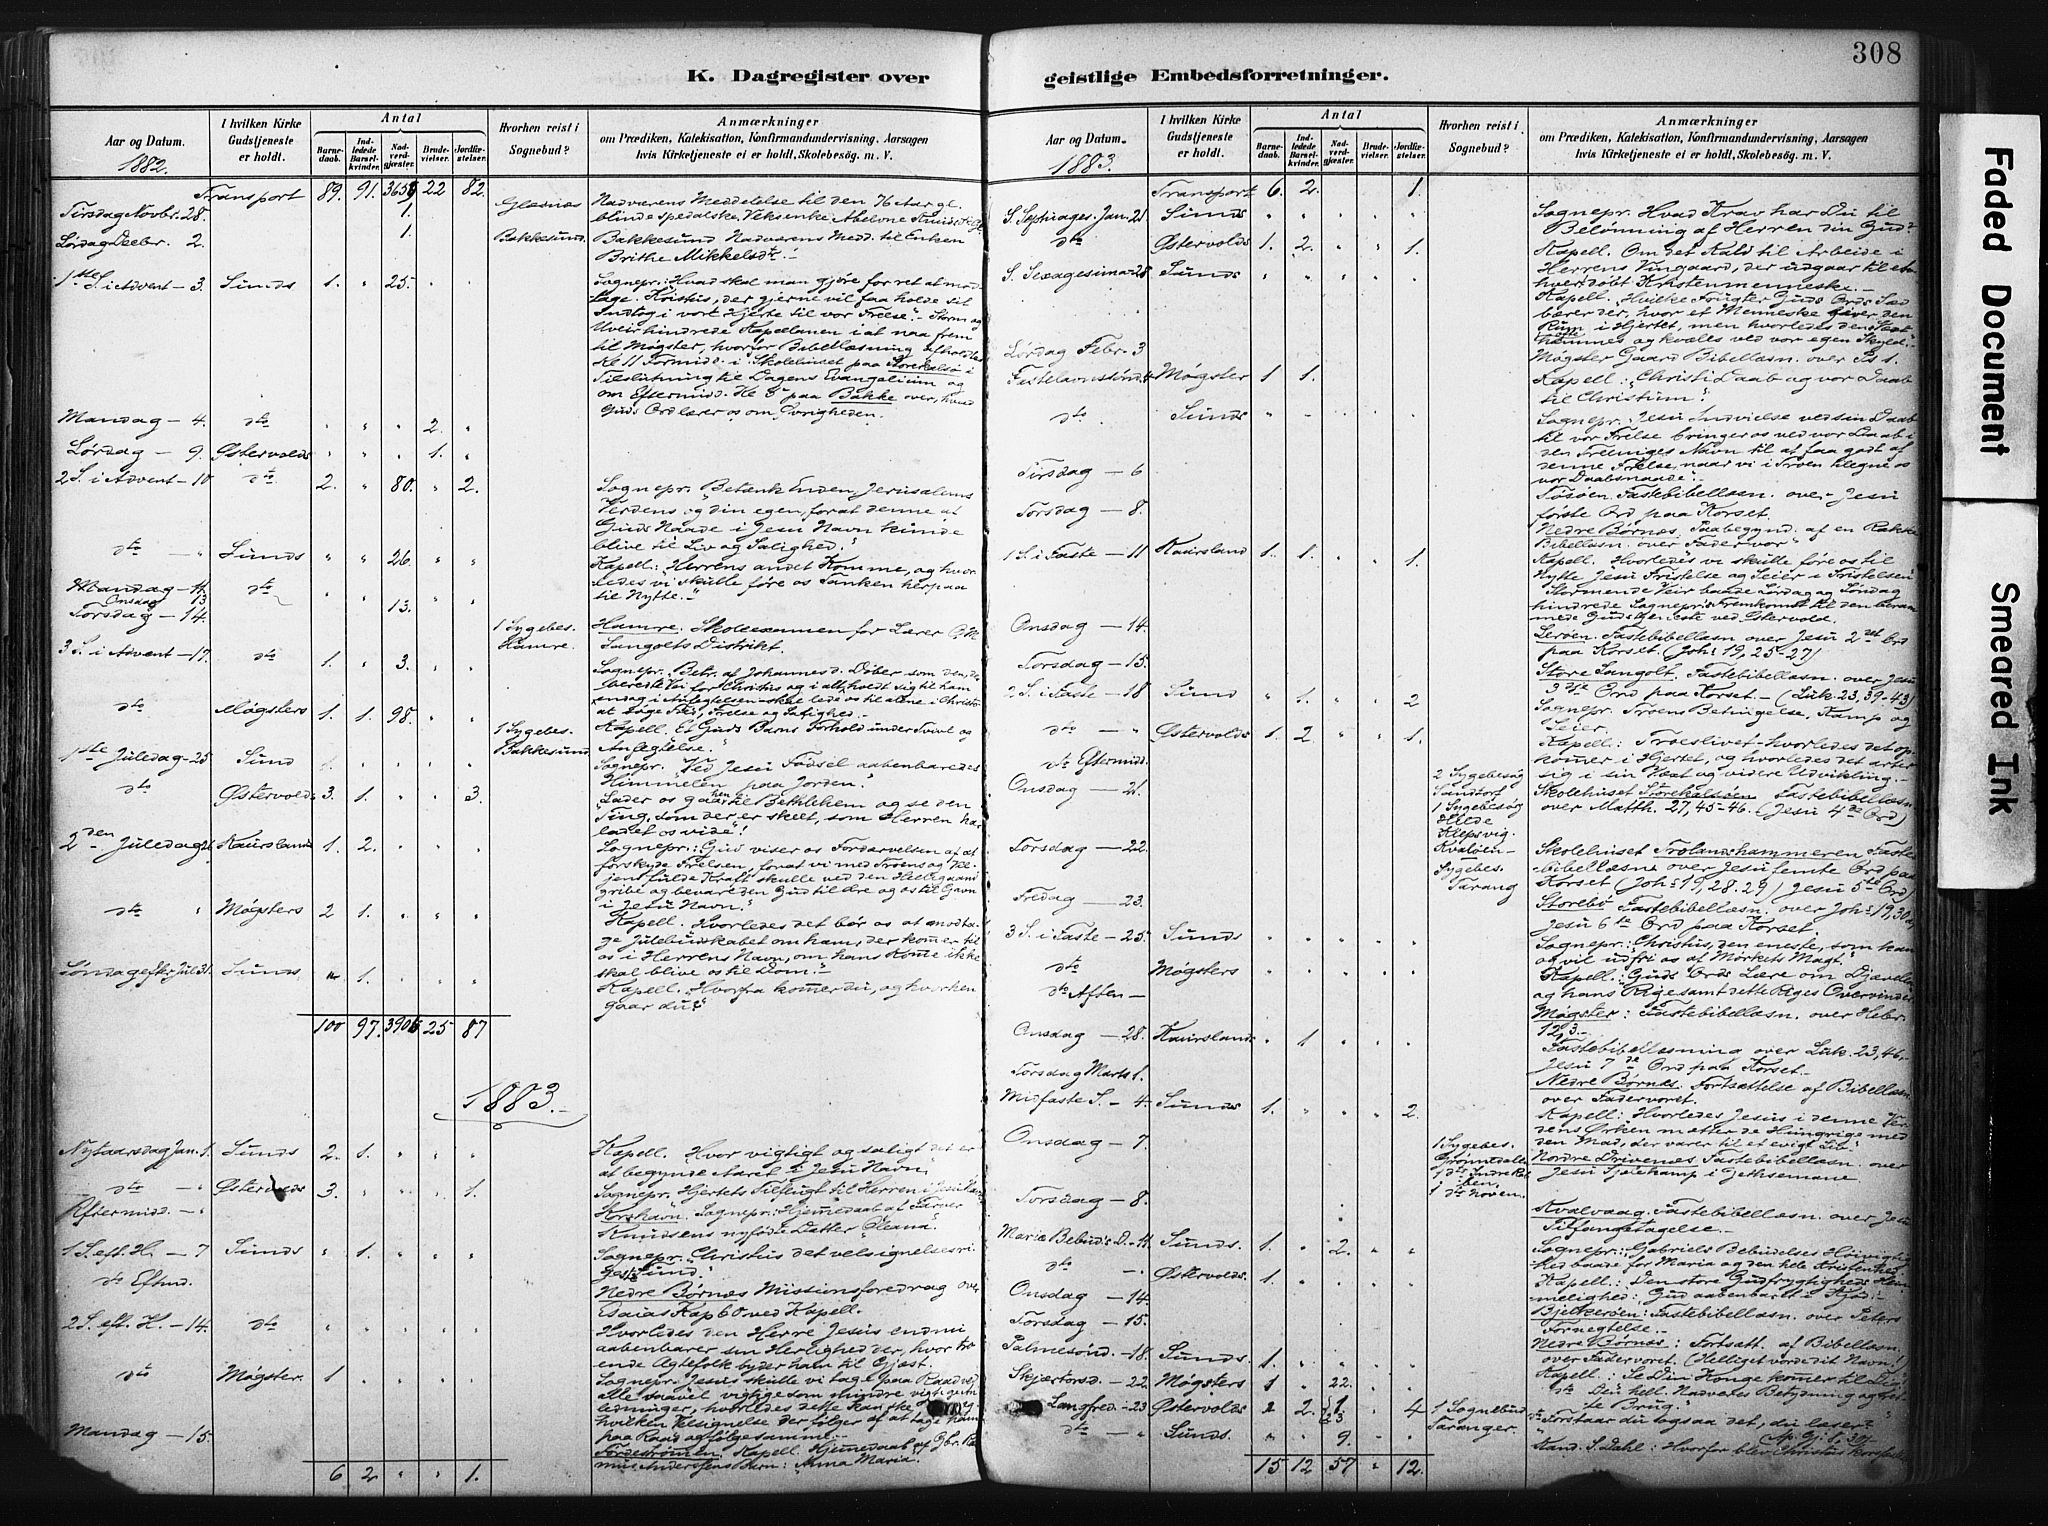 308
K. Dagregister over geistlige Embedsforretninger.
Aar og Datum.
1882.
I hvilken Kirke Gudstjeneste er holdt.
Antal
Barnedaab.
Indledede Barselkvinder.
Nadverdgjæster.
Brudevielser.
Jordfæstelser.
Hvorhen reist i Sognebud?
Anmærkninger
om Prædiken, Katekisation, Konfirmandundervisning, Aarsagen
hvis Kirketjeneste ei er holdt, Skolebesøg. m. V.
Transport 89. 91. 22 82.
Tirsdag Novbr. 28. 1. Glesnæs Nadværens Meddelelse til den 76 etar gl.
blinde spedalske
Lørdag Decbr. 2. 1. Bakkesund. Bakkesund Nadværens Medd. til Enken
Brithe Mikkelsdt.
1ste S. i Advent - 3. Sunds 1. " 25. " " Sognepr: Hvad skal man gjøre for ret at mod-
tage Kristus, der gjerne vil faa holde sit
Indtog i vort Hjerte til vor Frelse". Storm og
Uveir hindrede Kapellanen i at naa frem
til Møgster, hvorfor Bibellæsning afholdtes
Kl 11 Formidd. i Skolehuset paa Storekalsø i
Tilslutning til Dagens Evangelium og
om Eftermidd. Kl 5 paa Bakke over, hvad
Guds Ord lærer os om Øvrigheden.
Mandag - 4. dto " " " 2. "
Lørdag - 9. Østervolds " " " 1. "
2 S. i Advent - 10 dto 2. " 80. " 2. Sognepr. "Betænk Enden, Jerusalems
Verdens og din egen, forat denne at
Guds Naade i Jesu Navn kunde
blive til Liv og Salighed."
dto - " Sunds " " 26. " " Kapell: "Herrens andet Komme, og hvor-
ledes vi skulle føre os Tanken herpaa
til Nytte."
Mandag - 11. dto " " " "
Onsdag 13
Torsdag - 14. 13. 1 Sygebes. Hamre. Hamre. Skoleexamen for Lærer O. M.
Sangolts Distrikt.
3 S. i Advent - 17. dto 1. " 3. " " Sognepr. Betr. af Johannes d. Døber som den, der
beredte Vei for Christus
at søge Fred, Frelse og Salighed.
dto Møgsters 1. 1. 98. " " 1 Sygebes. Bakkesund. Kapell. Et Guds Barns Forhold under Tvivl og
Anfegtelse."
1ste Juledag - 25 Sund 1. " " " " Sognepr. "Ved Jesu Fødsel aabenbaredes
Himmelen paa Jorden."
dto Østervolds 3. 1. " " 3. "Lader os gaa hen til Bethlehem og se den
Ting, som der er skeet, som Herren har
ladet os vide"!
2den Juledag 26. Kaurslands 1. 2. " " " Sognepr.: Gud viser os Fordærvelsen af at
forskyde Frelsen, forat vi med Troens og Vil-
jens fulde Kraft skulle ved den Helligaand
gribe og bevare den Gud til Ære og os til Gavn
i Jesu Navn."
dto " Møgsters 2 1. " " " Kapell. Hvorledes det bør os at modta-
ge Julebudskabet om ham, der kommer til
os i Herrens Navn, om hans Komme ikke
skal blive os til Dom."
Søndag eft. Jul 31. Sunds " 1. " " " Kapell. "Hvorfra kommer du, og hvorhen
gaar du?"
100 97. 25 87
1883.
Nytaarsdag Jan. 1. Sunds 2. 1. " " " Kapell. "Hvor vigtigt og saligt det er
at begynde Aaret i Jesu Navn"
dto - " Østervolds 3. " " " 1. Sognepr. Hjertets Tilflugt til Herren i Jesu Navn
Eftermidd. - " Korshavn. Sognepr.: Hjemmedaab af Farver
Knudsens nyfødte Datter "Oleana".
1 S. eft. H. - 7 Sunds " 1. " " " Sognepr. "Christus det velsignelsesri-
ge Sund."
dto Eftmd. Nedre Børnes Missionsforedrag over
Esaias Kap 60 ved Kapell.
2 S. eft. H. - 14. dto " " " " " Hvorledes den Herre Jesus endnu
aabenbarer sin Herlighed der, hvor tro-
ende Ægtefolk byder ham til Gjæst.
dto Møgster. 1 " " " " Sognepr. Jesus skulle vi tage paa Raad ved
alle saavel vigtige som mindre vigtige An-
ledninger, hvorledes dette kan ske, og
hvilken Velsignelse der følger af at tage ham
paa Raad og følge samme.
Mandag - 15. Førdestrømmen Kapell. Hjemmedaab af Gbr. Ras-
mus Anderssens Barn: Anna Maria.
6 2 " " 1.
Aar og Datum.
1883.
I hvilken Kirke Gudstjeneste er holdt.
Antal
Barnedaab.
Indledede Barselkvinder.
Nadverdgjæster.
Brudevielser.
Jordfæstelser.
Hvorhen reist i Sognebud?
Anmærkninger
om Prædiken, Katekisation, Konfirmandundervisning, Aarsagen
hvis Kirketjeneste ei er holdt, Skolebesøg. m. V.
Transport 6. 2. 1.
S. Septuages. Jan. 21 Sunds " " " " " Sognepr. Hvad Krav har Du til
Belønning af Herren din Gud?
dto Østervolds 1. 2. " " 1. Kapell. Om det Kald til Arbeide i
Herrens Viingaard, der udgaar til et-
hvert døbt Kristenmenneske.
S. Sexagesima - 28 Sunds " " " " " Kapell. "Hvilke Frugter Guds Ords Sæd
bærer der, hvor et Menneske giver den
Rum i Hjertet, men hvorledes den Sæd ofte
hæmmes og kvæles ved vor egen Skyld."
Lørdag Febr. 3 Møgster Gaard Bibellæsn. over Ps 1.
Fastelavnssønd. 4. Møgster 1 1. " " " Kapell: "Christi Daab og vor Daab
til Christum".
dto Sunds " " " " " Sognepr. Jesu Indvielse ved sin Daab
til vor Frelse bringer os ved vor Daab i
den Treeniges Navn til at faa godt af
denne Frelse, naar vi i Troen tilegne os
vor Daabsnaade.
Tirsdag - 6 Tøsøen. Fastebibellæsn. over Jesu
første Ord paa Korset.
Torsdag - 8. Nedre Børnes. Paabegynd. af en Række
Bibellæsn. over "Fader vor"
1 S. i Faste - 11. Kaursland 1. 1. " " 1. Kapell. Hvorledes vi skulle føre os til
Nytte Jesu Fristelse og Seier i Fristelsen
Stormende Veir baade Lørdag og Søndag
hindrede Sognepr's Fremkomst til den beram-
mede Gudstjeneste ved Østervold.
Onsdag - 14. Lerøen. Fastebibellæsn. over Jesu 2det Ord
paa Korset (Joh: 19, 25-27)
Torsdag - 15. Store Sangolt. Fastebibellæsn. over Jesu
3die Ord paa Korset - (Luk. 23, 39-43)
2 S. i Faste - 18 Sund " 1. " " 2 Sognepr. Troens Betingelse, Kamp og
Seier.
dto - " Østervolds 1. 2. " " 1. Kapell: Troeslivet - hvorledes det op-
kommer i Hjertet, og hvorledes det arter
sig i sin Væxt og videre Udvikling.
dto Eftermidd.
Onsdag - 21. 2 Sygebesøg Sandtorf 1 Sygebesøg Hilde Klepsvig. Kvaløen Skolehuset Storekalsøen Fastebibellæsn
over Matth. 27, 45-46. (Jesu 4de Ord)
Torsdag - 22. Sygebes. Tarang Skolehuset Trolandshammeren Faste-
bibellæsn over Jesu femte Ord paa
Korset (Joh: 19, 28. 29) Jesu 5te Ord
Fredag - 23. Storebø Fastebibellæsn. over Joh: 19, 30
Jesu 6te Ord paa Korset.
3 S. i Faste - 25. Sunds " " " " " Sognepr: Christus, den eneste, som kan
og vil udfri os af Mørkets Magt."
dto Møgsters " " " " " Kapell.: "Guds Ords Lære om Djævelen
og hans Rige samt dette Riges Overvinder
dto Aften - Møgster: Fastebibellæsn. over Hebr.
12, 3.
Onsdag - 28. Kaurslands " 1 " " " Fastebibellæsning over Luk. 23, 46,
Jesu 7de Ord paa Korset.
Torsdag Marts 1. Nedre Børnes. Fortsættelse af Bibellæsn
over Fadervoret.
Midfaste S. - 4. Sunds 1. " " " 2. Kapell: Hvorledes Jesus i denne Ver-
dens Ørken mætter de Hungrige med
den Mad, der varer til et evigt Liv."
Onsdag - 7. 1 Sygebes. Nordre Drivenes Fastebibellæsn. over
Jesu Sjælekamp i Gethsemane
Torsdag - 8. Kvalvaag. Fastebibellæsn. over Jesu
Tilfangetagelse.
Mariæ Bebud's D. - 11. Sunds. 1. " 2. " " Sognepr.: Gabriels Bebudelses Høivigtig-
hed baade for Maria og den hele Kristenhed
dto - " Østervolds. 1. " " " " Kapell.: Den store Gudfrygtigheds Hem-
melighed: Gud aabenbaret i Kjød.
Onsdag - 14. Bjelkerøen: Fastebibellæsn. over Peters
Fornegtelse.
Torsdag - 15. Nedre Børnes: Fortsatt. af Bibellæsn.
over Fadervoret. (Helliget vorde dit Navn!)
Palmesønd. - 18. Sunds. 1. " " " " Kapell: "Se Din Konge kommer til Dig"
Skjærtorsd. - 22. Møgsters 1 " 22. " " dto Den hell. Nadveres Betydning og ret-
te Brug."
Langfred. - 23 Østervolds 2 2. " 4 1 Sognebud Taranger. dto "Forstaar du ogsaa det, du læser?"
dto - " Sunds. " " 9. " " Kand. S. Dahl: Hvorfor blev Christus korsfæstet
15 12 57 " 12.
Faded Document
Smeared Ink